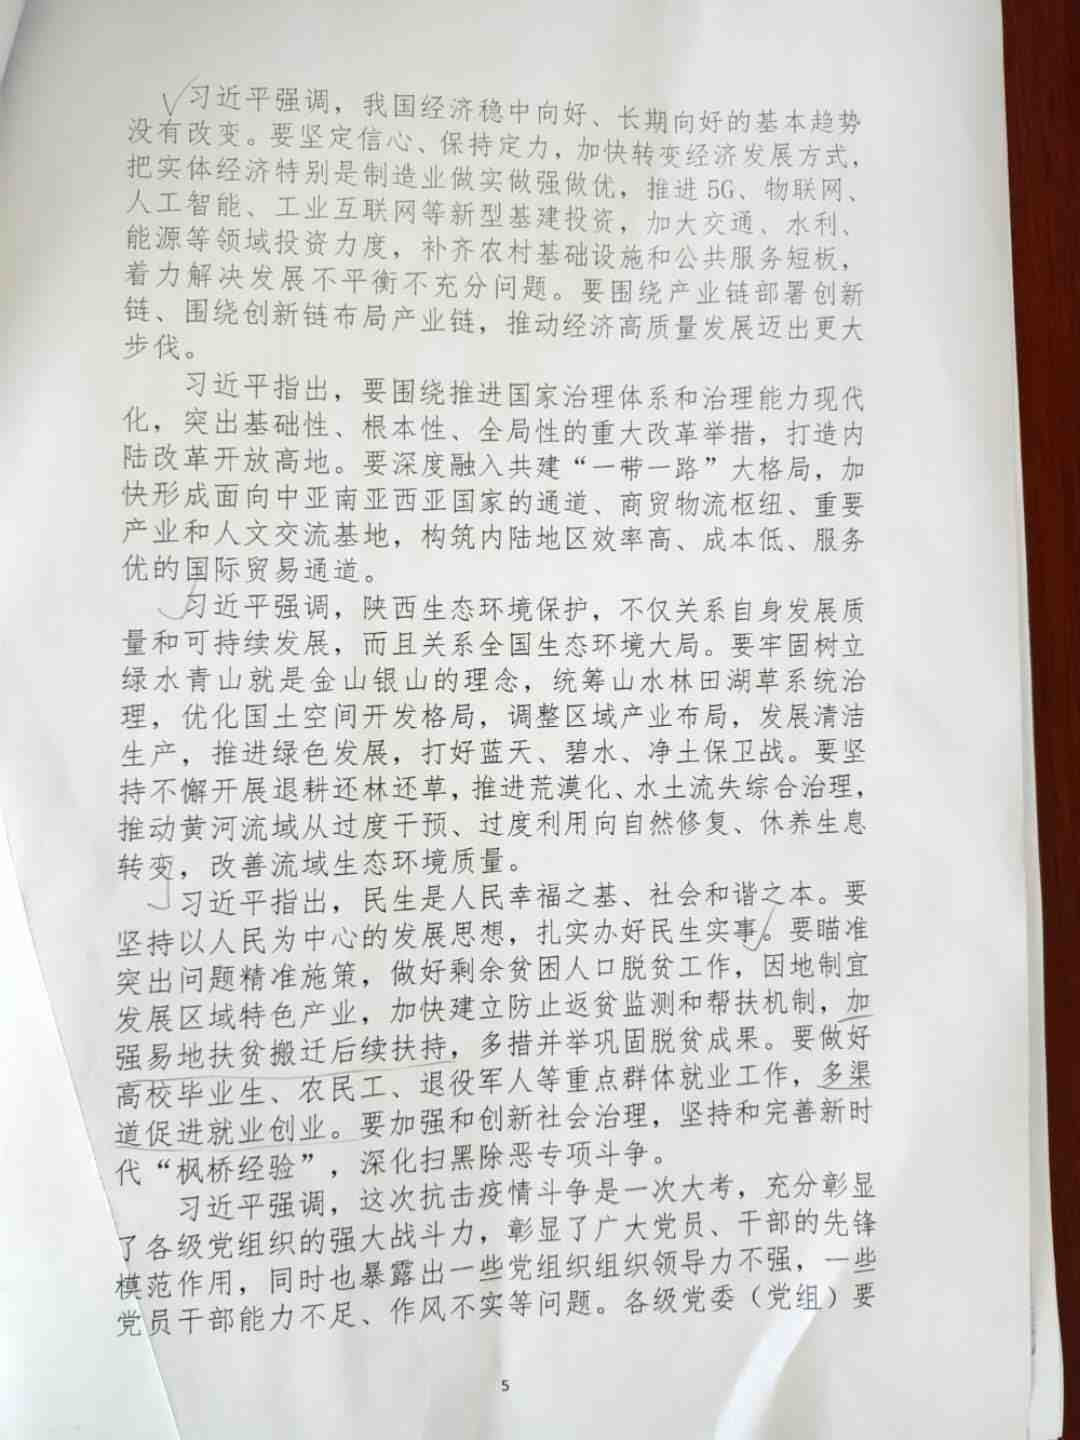 习近平强调，我国经济稳中向好、长期向好的基本趋势
没有改变。要坚定信心、保持定力，加快转变经济发展方式，
把实体经济特别是制造业做实做强做优，推进 5G、物联网、
人工智能、工业互联网等新型基建投资，加大交通、水利、
能源等领域投资力度，补齐农村基础设施和公共服务短板，
着力解决发展不平衡不充分问题。要围绕产业链部署创新
链、围绕创新链布局产业链，推动经济高质量发展迈出更大
步伐。
习近平指出，要围绕推进国家治理体系和治理能力现代
化，突出基础性、根本性、全局性的重大改革举措，打造内
陆改革开放高地。要深度融入共建“一带一路”大格局，加
快形成面向中亚南亚西亚国家的通道、商贸物流枢纽、重要
产业和人文交流基地，构筑内陆地区效率高、成本低、服务
优的国际贸易通道。
习近平强调，陕西生态环境保护，不仅关系自身发展质
量和可持续发展，而且关系全国生态环境大局。要牢固树立
绿水青山就是金山银山的理念，统筹山水林田湖草系统治
理，优化国土空间开发格局，调整区域产业布局，发展清洁
生产，推进绿色发展，打好蓝天、碧水、净土保卫战。要坚
持不懈开展退耕还林还草，推进荒漠化、水土流失综合治理，
推动黄河流域从过度干预、过度利用向自然修复、休养生息
转变，改善流域生态环境质量。
习近平指出，民生是人民幸福之基、社会和谐之本。要
坚持以人民为中心的发展思想，扎实办好民生实事。要瞄准
突出问题精准施策，做好剩余贫困人口脱贫工作，因地制宜
发展区域特色产业，加快建立防止返贫监测和帮扶机制，加
强易地扶贫搬迁后续扶持，多措并举巩固脱贫成果。要做好
高校毕业生、农民工、退役军人等重点群体就业工作，多渠
道促进就业创业。要加强和创新社会治理，坚持和完善新时
代“枫桥经验”，深化扫黑除恶专项斗争。
习近平强调，这次抗击疫情斗争是一次大考，充分彰显
了各级党组织的强大战斗力，彰显了广大党员、干部的先锋
模范作用，同时也暴露出一些党组织组织领导力不强，一些
党员干部能力不足、作风不实等问题。各级党委（党组）要
5